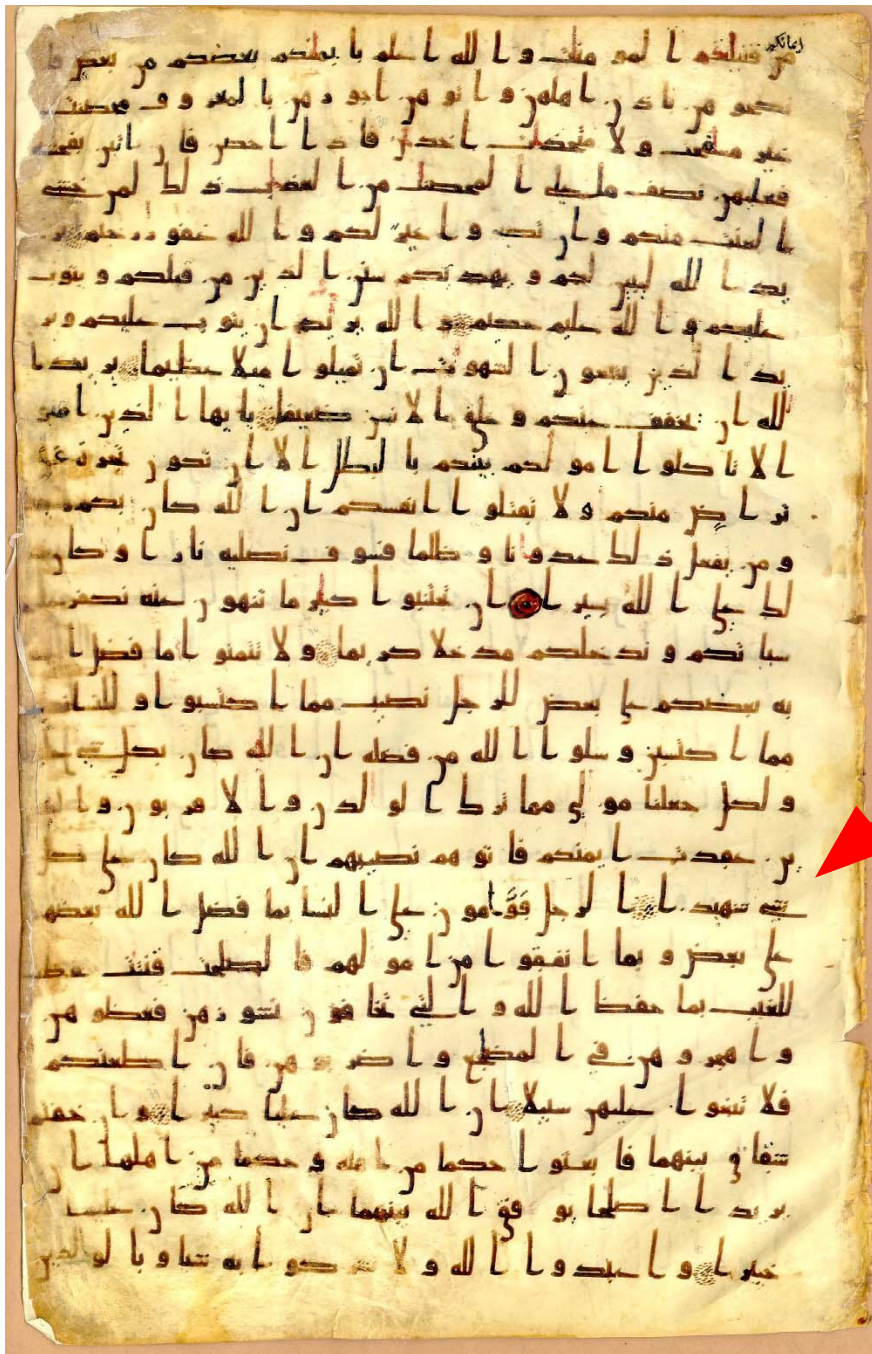 ايمانكم
من فتيتكم المومنت والله اعلم بايمنكم بعضكم من بعض فا
نكحوهن باذن اهلهن واتوهن اجورهن بالمعروف محصنت
غير مسفحت ولا متخذت اخدان فاذا احصن فان اتين بفحشه
فعليهن نصف ما على المحصنت من العذاب ذلك لمن خشي
العنت منكم وان تصبروا خير لكم والله غفور رحيم ير
يد الله ليبين لكم ويهديكم سنن الذين من قبلكم ويتوب
عليكم والله عليم حكيم والله يريد ان يتوب عليكم وير
يد الذين يتبعون الشهوت ان تميلوا ميلا عظيما يريد ا
لله ان يخفف عنكم وخلق الانسن ضعيفا يايها الذين امنو
ا لا تاكلوا امولكم بينكم بالبطل الا ان تكون تجرة عن
تراض منكم ولا تقتلوا انفسكم ان الله كان بكم
ومن يفعل ذلك عدونا وظلما فسوف نصليه نارا وكان ذ
لك على الله يسيرا ان تجتنبوا كبير ما تنهون عنه نكفر عنكم
سياتكم وندخلكم مدخلا كريما ولا تتمنوا ما فضل ا
به بعضكم على بعض للرجل نصيب مما اكتسبوا وللنسا
مما اكتسبن وسلوا الله من فضله ان الله كان بكل شي
ولكل جعلنا مولي مما ترك الولدن والاقربون والذ
ين عقدت ايمنكم فاتوهم نصيبهم ان الله كان على كل
شي شهيدا الرجل قَوَّامون على النسا بما فضل الله بعضهم
على بعض وبما انفقوا من امولهم فالصلحت قنتت حفظت
للغيب بما حفظ الله والتي تخافون نشوزهن فعظوهن
واهجروهن في المضجع واضربوهن فان اطعنكم
فلا تبغوا عليهن سبيلا ان الله كان عليا كبيرا وان خفتم
شقاق بينهما فابعثوا حكما من اهله وحكما من اهلها ان
يريدا اصلحا يوفق الله بينهما ان الله كان عليما
خبيرا واعبدوا الله ولا تشركوا به شيا وبالولدين